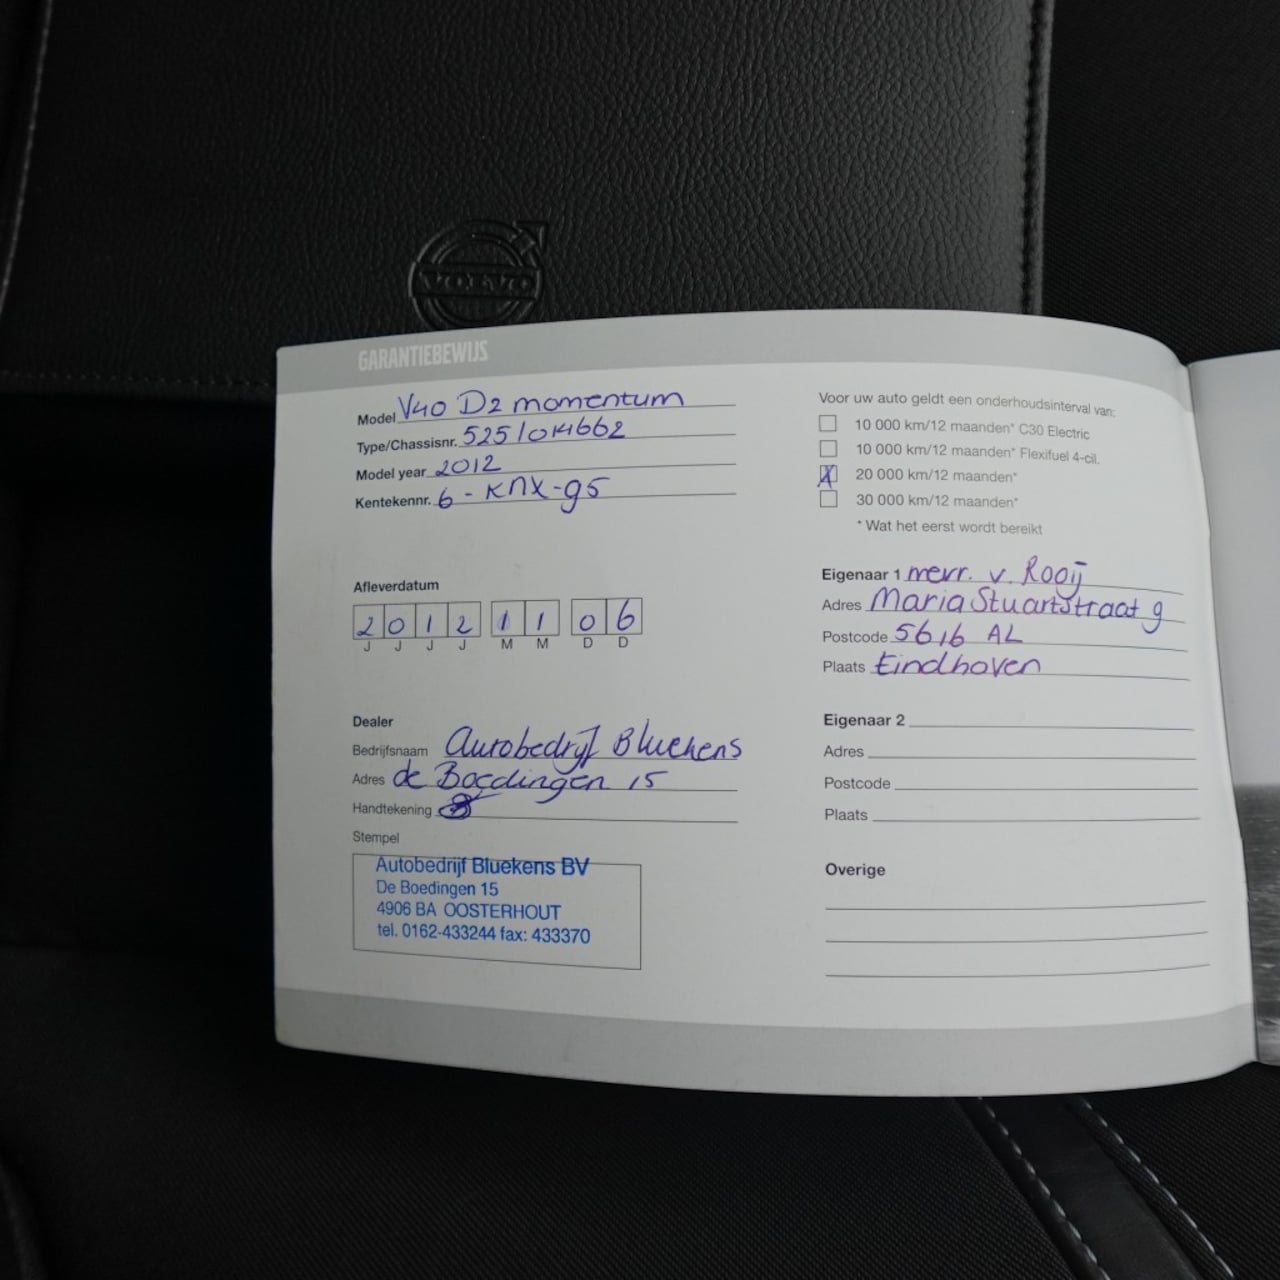 VOLVO
GARANTIEBEWIJS
Model V40 D2 momentum
Type/Chassisnr. 525/014662
Model year 2012
Kentekennr. 6-KNX-95
Afleverdatum
2 0 1 2 1 1 0 6
J J J J M M D D
Dealer
Bedrijfsnaam Autobedrijf Bluekens
Adres de Boedingen 15
Handtekening
Stempel
Autobedrijf Bluekens BV
De Boedingen 15
4906 BA OOSTERHOUT
tel. 0162-433244 fax: 433370
Voor uw auto geldt een onderhoudsinterval van:
10 000 km/12 maanden* C30 Electric
10 000 km/12 maanden* Flexifuel 4-cil.
X 20 000 km/12 maanden*
30 000 km/12 maanden*
* Wat het eerst wordt bereikt
Eigenaar 1 mevr. v. Rooij
Adres Maria Stuartstraat 9
Postcode 5616 AL
Plaats Eindhoven
Eigenaar 2
Adres
Postcode
Plaats
Overige